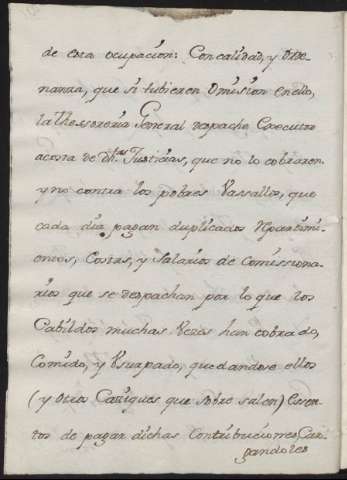 de esta ocupacion: Con calidad, y Orde-
nanza, que si tubieren Omission en ello,
la Thessoreria General despache Executor
acosta de dhas. Justicias, que no lo cobraren
y no contra los pobres Vassallos, que
cada dia pagan duplicados Repartimi-
entos, Costas, y Salarios de Comissiona-
rios que se despachan por lo que los
Cabildos muchas Vezes han cobrado,
Comido, y Vsurpado, quedandose ellos
(y otros Caziques que sobre salen) Esen-
tos de pagar dichas Contribuciones Car-
gandoles